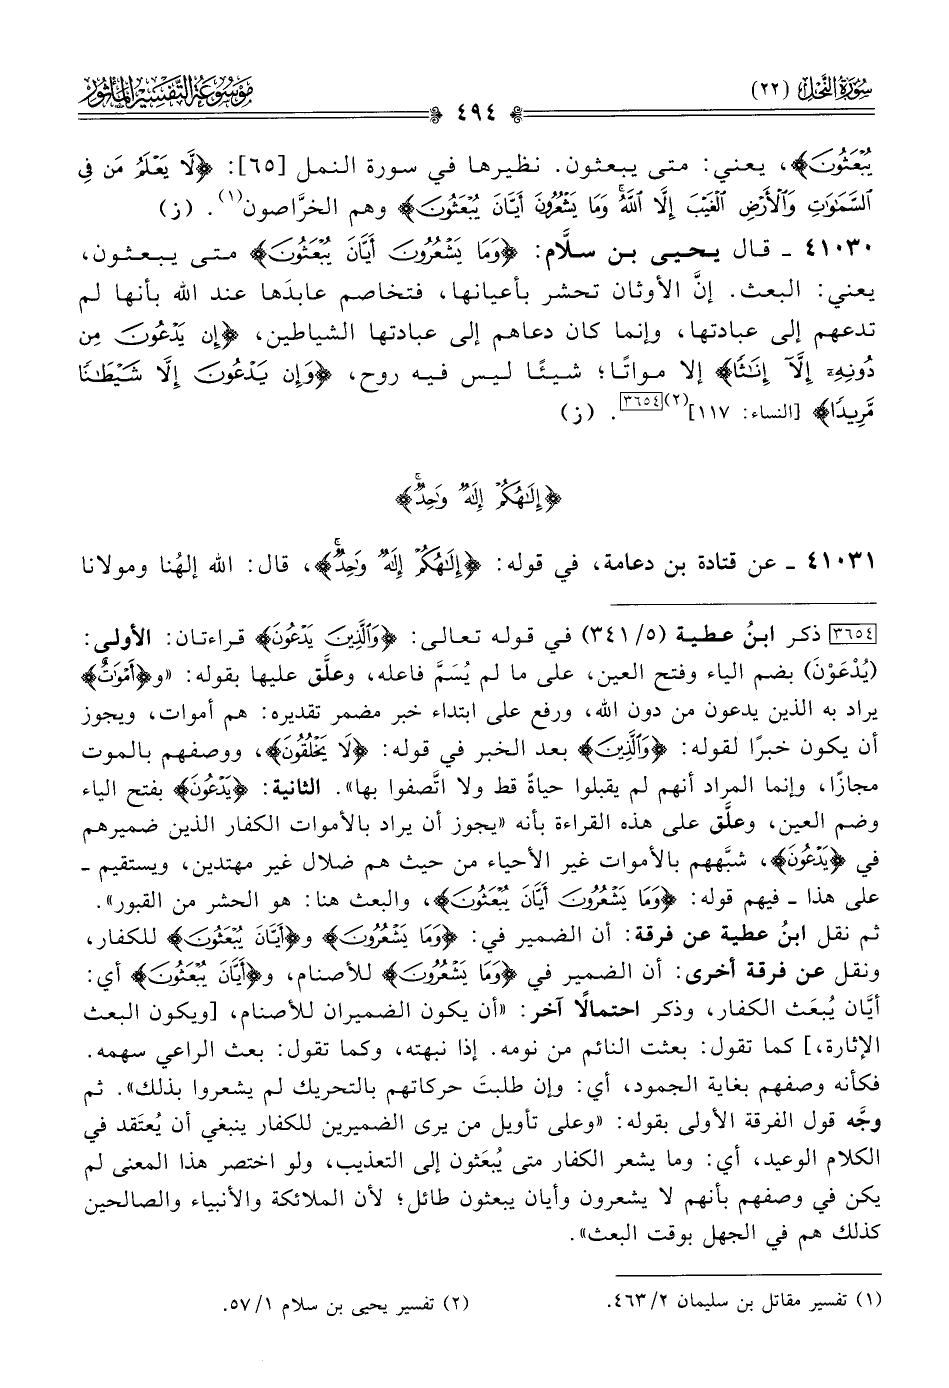 سُورَةُ النَّحْلِ (٢٢)
٤٩٤
مَوْسُوعَةُ التَّفْسِيرِ المَأْثُورِ
يُبْعَثُونَ﴾، يعني: متى يبعثون. نظيرها في سورة النمل [٦٥]: ﴿لَّا يَعْلَمُ مَن فِي
السَّمَٰوَٰتِ وَالْأَرْضِ الْغَيْبَ إِلَّا اللَّهُ ۚ وَمَا يَشْعُرُونَ أَيَّانَ يُبْعَثُونَ﴾ وهم الخرَّاصون(١). (ز)
٤١٠٣٠ ـ قال يحيى بن سلَّام: ﴿وَمَا يَشْعُرُونَ أَيَّانَ يُبْعَثُونَ﴾ متى يبعثون،
يعني: البعث. إنَّ الأوثان تحشر بأعيانها، فتخاصم عابدَها عند الله بأنها لم
تدعهم إلى عبادتها، وإنما كان دعاهم إلى عبادتها الشياطين، ﴿إِن يَدْعُونَ مِن
دُونِهِ إِلَّآ إِنَٰثًا﴾ إلا مواتًا؛ شيئًا ليس فيه روح، ﴿وَإِن يَدْعُونَ إِلَّا شَيْطَٰنًا
مَّرِيدًا﴾ [النساء: ١١٧](٢)[٣٦٥٤]. (ز)
﴿إِلَٰهُكُمْ إِلَٰهٌ وَٰحِدٌ ۚ﴾
٤١٠٣١ ـ عن قتادة بن دعامة، في قوله: ﴿إِلَٰهُكُمْ إِلَٰهٌ وَٰحِدٌ ۚ﴾، قال: الله إلهُنا ومولانا
[٣٦٥٤] ذكر ابنُ عطية (٣٤١/٥) في قوله تعالى: ﴿وَالَّذِينَ يَدْعُونَ﴾ قراءتان: الأولى:
(يُدْعَوْنَ) بضم الياء وفتح العين، على ما لم يُسَمَّ فاعله، وعلَّق عليها بقوله: «و﴿أَمْوَٰتٌ﴾
يراد به الذين يدعون من دون الله، ورفع على ابتداء خبر مضمر تقديره: هم أموات، ويجوز
أن يكون خبرًا لقوله: ﴿وَالَّذِينَ﴾ بعد الخبر في قوله: ﴿لَا يَخْلُقُونَ﴾، ووصفهم بالموت
مجازًا، وإنما المراد أنهم لم يقبلوا حياةً قط ولا اتَّصفوا بها». الثانية: ﴿يَدْعُونَ﴾ بفتح الياء
وضم العين، وعلَّق على هذه القراءة بأنه «يجوز أن يراد بالأموات الكفار الذين ضميرهم
في ﴿يَدْعُونَ﴾، شبَّههم بالأموات غير الأحياء من حيث هم ضلال غير مهتدين، ويستقيم ـ
على هذا ـ فيهم قوله: ﴿وَمَا يَشْعُرُونَ أَيَّانَ يُبْعَثُونَ﴾، والبعث هنا: هو الحشر من القبور».
ثم نقل ابنُ عطية عن فرقة: أن الضمير في: ﴿وَمَا يَشْعُرُونَ﴾ و﴿أَيَّانَ يُبْعَثُونَ﴾ للكفار،
ونقل عن فرقة أخرى: أن الضمير في ﴿وَمَا يَشْعُرُونَ﴾ للأصنام، و﴿أَيَّانَ يُبْعَثُونَ﴾ أي:
أيَّان يُبعَث الكفار، وذكر احتمالًا آخر: «أن يكون الضميران للأصنام، [ويكون البعث
الإثارة،] كما تقول: بعثت النائم من نومه. إذا نبهته، وكما تقول: بعث الراعي سهمه.
فكأنه وصفهم بغاية الجمود، أي: وإن طلبتَ حركاتهم بالتحريك لم يشعروا بذلك». ثم
وجَّه قول الفرقة الأولى بقوله: «وعلى تأويل من يرى الضميرين للكفار ينبغي أن يُعتَقد في
الكلام الوعيد، أي: وما يشعر الكفار متى يُبعَثون إلى التعذيب، ولو اختصر هذا المعنى لم
يكن في وصفهم بأنهم لا يشعرون وأيان يبعثون طائل؛ لأن الملائكة والأنبياء والصالحين
كذلك هم في الجهل بوقت البعث».
(١) تفسير مقاتل بن سليمان ٤٦٣/٢. (٢) تفسير يحيى بن سلام ٥٧/١.